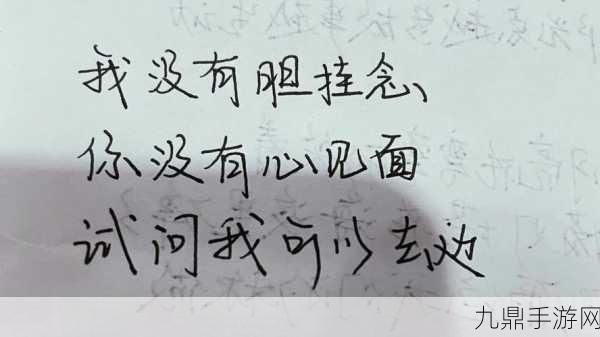 我没有胆挂念
你没有心见面
试问我可以去边
九鼎手游网